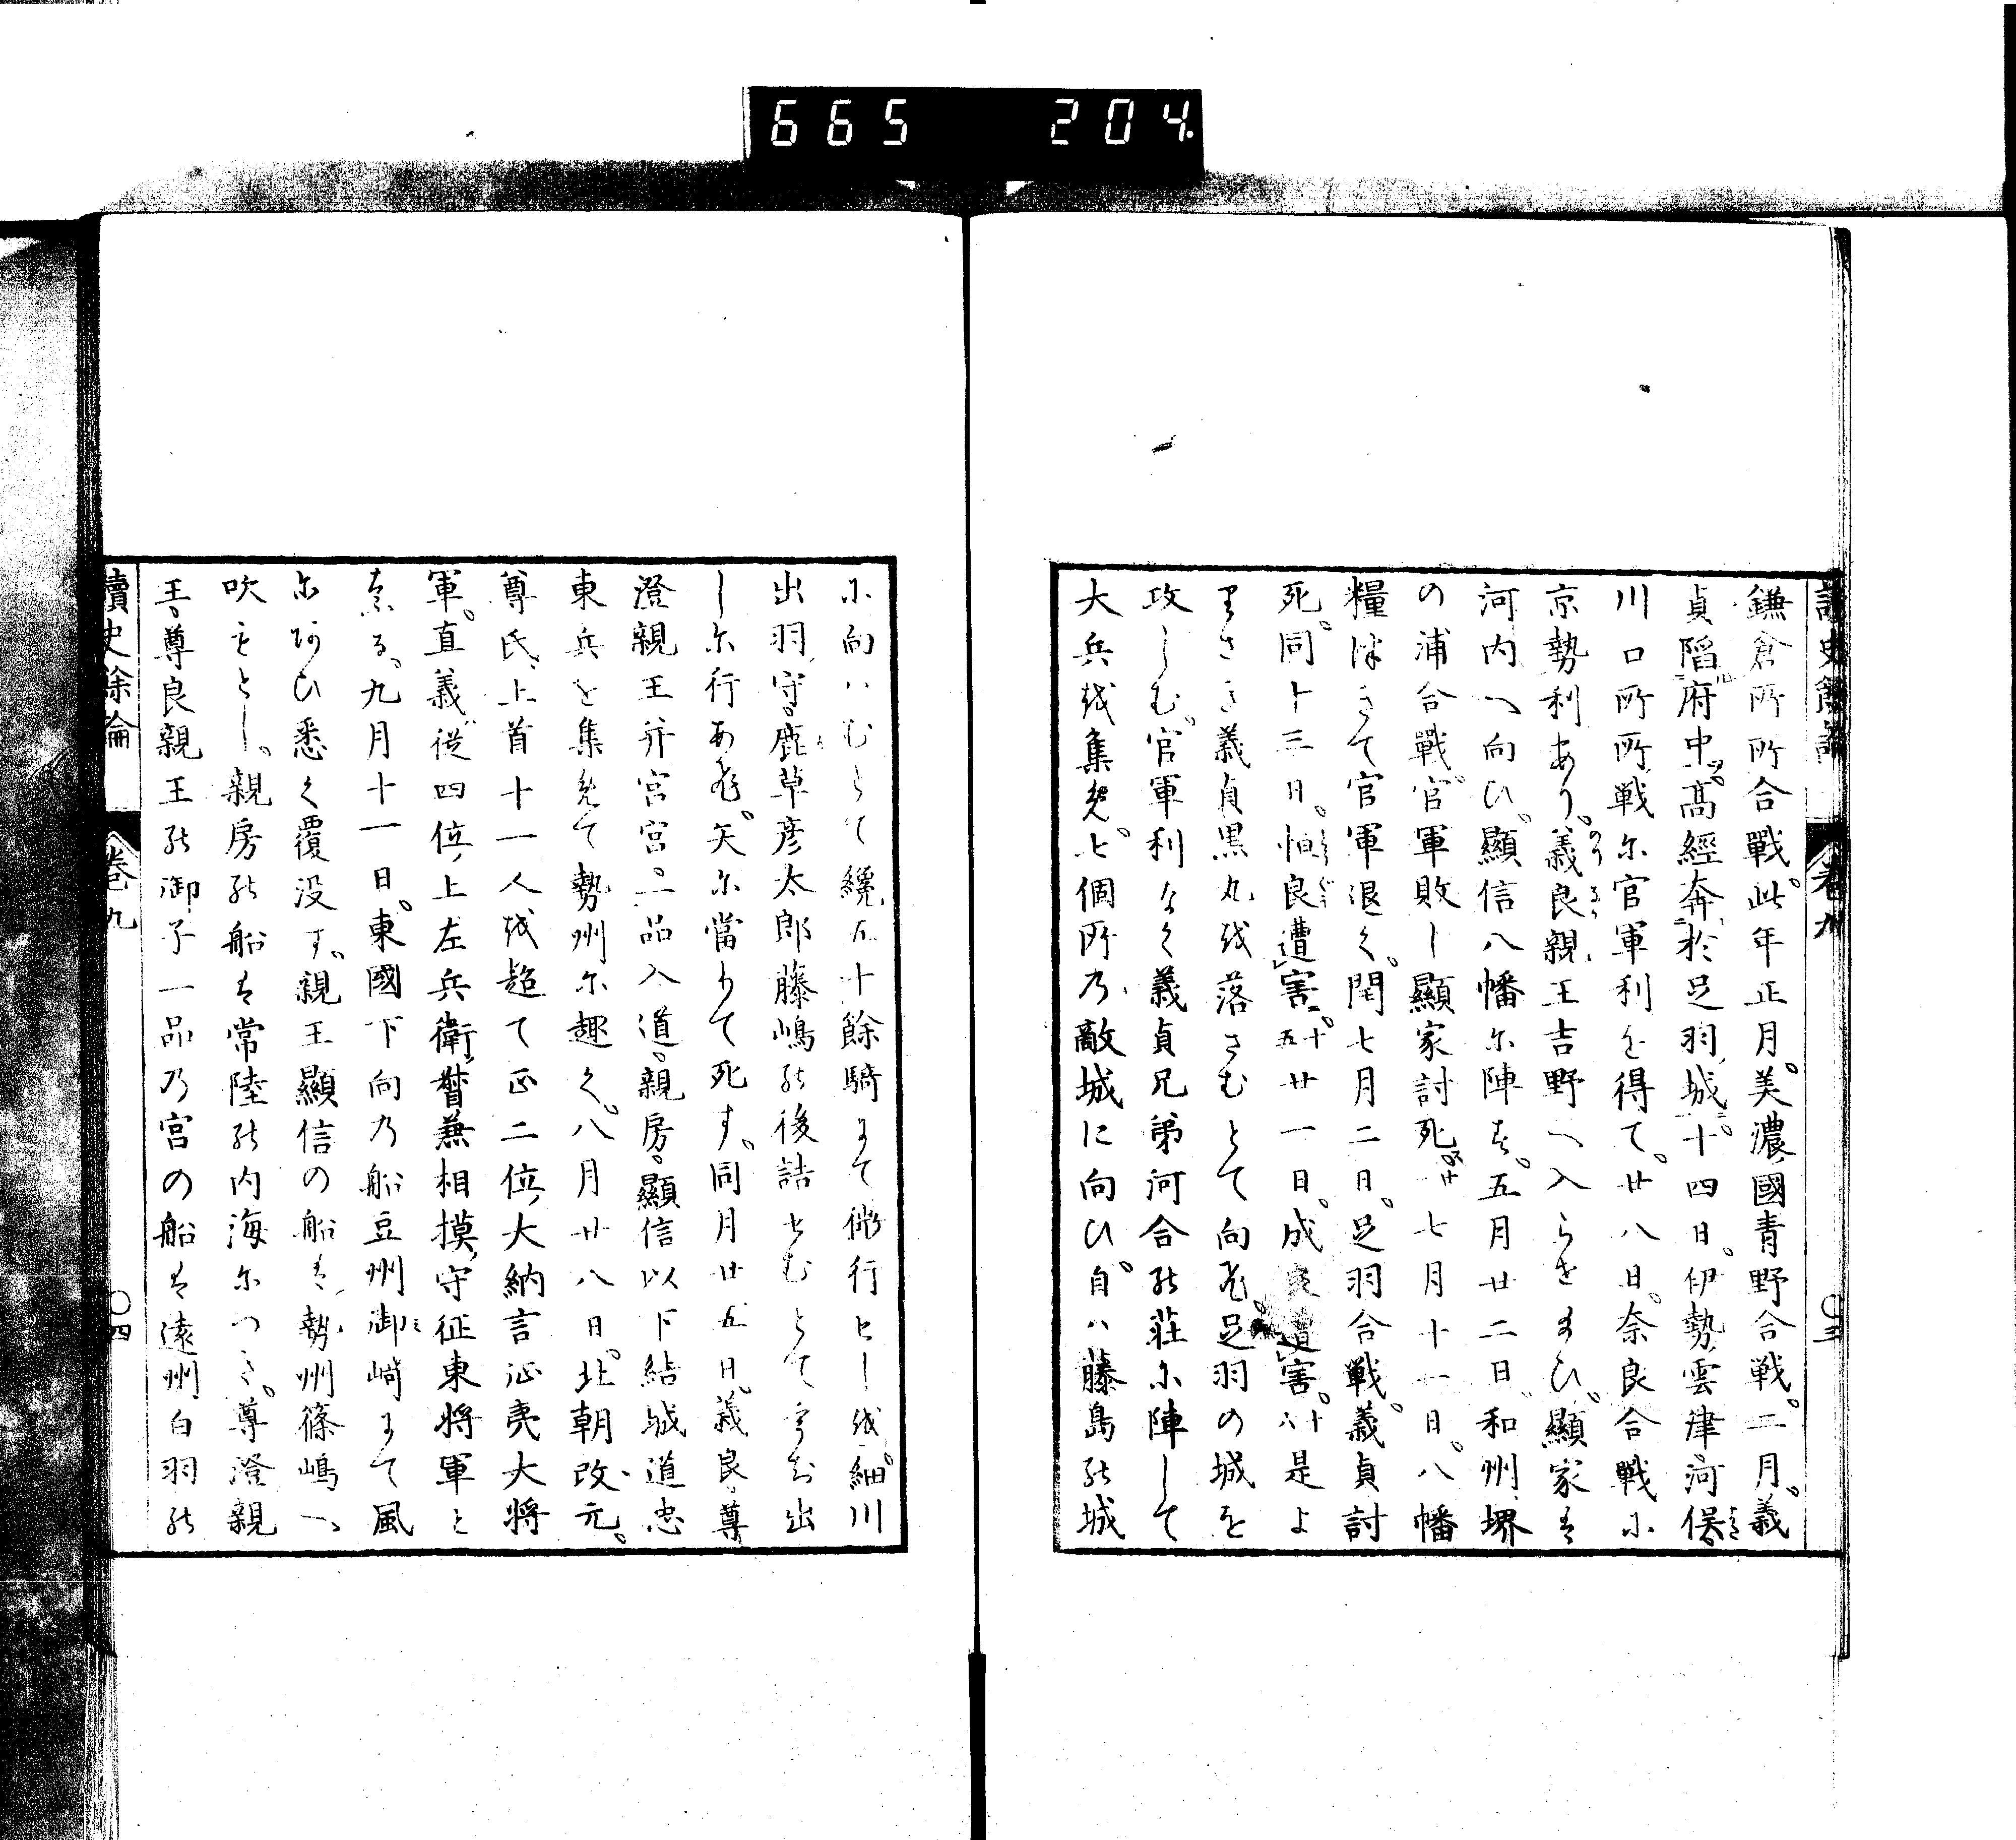 665 204.
讀史餘論 卷九 〇三
鎌倉所所合戰。此年正月。美濃國青野合戦。二月。義
貞陷府中。高經奔於足羽城。十四日。伊勢雲津河俣。
川口所所戦尓官軍利を得て。廿八日。奈良合戰尓
京勢利あり。義良親王吉野へ入らせ給ひ。顯家は
河内へ向ひ。顯信八幡尓陣す。五月廿二日。和州堺
の浦合戰。官軍敗し顯家討死。廿一七月十一日。八幡
糧つきて官軍退く。閏七月二日。足羽合戦。義貞討
死。同十三日。恒良遭害。十五廿一日。成良遭害。十八是よ
りさき義貞黒丸を落さむとて向ふ。足羽の城を
攻しむ。官軍利なく義貞兄弟河合の莊尓陣して
大兵を集め。七個所乃敵城に向ひ。自ハ藤島の城
尓向ハむとて纔五十餘騎にて微行せしを。細川
出羽守。鹿草彦太郎藤嶋の後詰せむとてうち出
し尓行あふ。矢尓當りて死す。同月廿五日。義良尊
澄親王并宮宮二品入道。親房。顯信以下結城道忠
東兵を集めて勢州尓趣く。八月廿八日。北朝改元。
尊氏。上首十一人を超て正二位大納言征夷大将
軍。直義從四位上左兵衛督兼相摸守征東将軍と
なる。九月十一日。東國下向乃船豆州御崎にて風
尓あひ悉く覆没す。親王顯信の船は勢州篠嶋へ
吹もとし。親房の船は常陸の内海尓つき。尊澄親
王。尊良親王の御子一品乃宮の船は遠州白羽の
讀史餘論 卷九 〇四